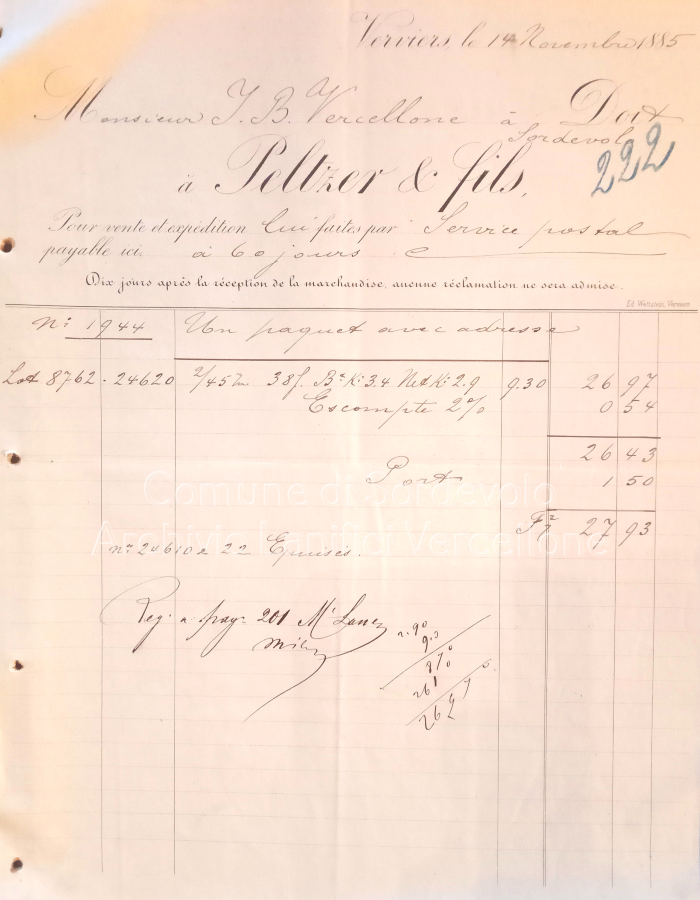 Verviers, le 14 Novembre 1885
Monsieur J. B. Vercellone à Doit
Sordevolo
222
à Peltzer & fils,
Pour vente et expédition lui faites par Service postal
payable ici. à 60 jours
Dix jours après la réception de la marchandise, aucune réclamation ne sera admise.
Nº 1944 Un paquet avec adresse
Lot 8762 - 24620 2/45 38 f. Bt Ko 3.4 Net Ko 2.9 9.30 26 97
Escompte 2% 0 54
26 43
Port 1 50
Fr 27 93
Comune di Sordevolo
Archivio Lanifici Vercellone
nos 24610 & 22 Epuisés.
Reg. a pag. 201 M
2.90
9.3
870
261
2697